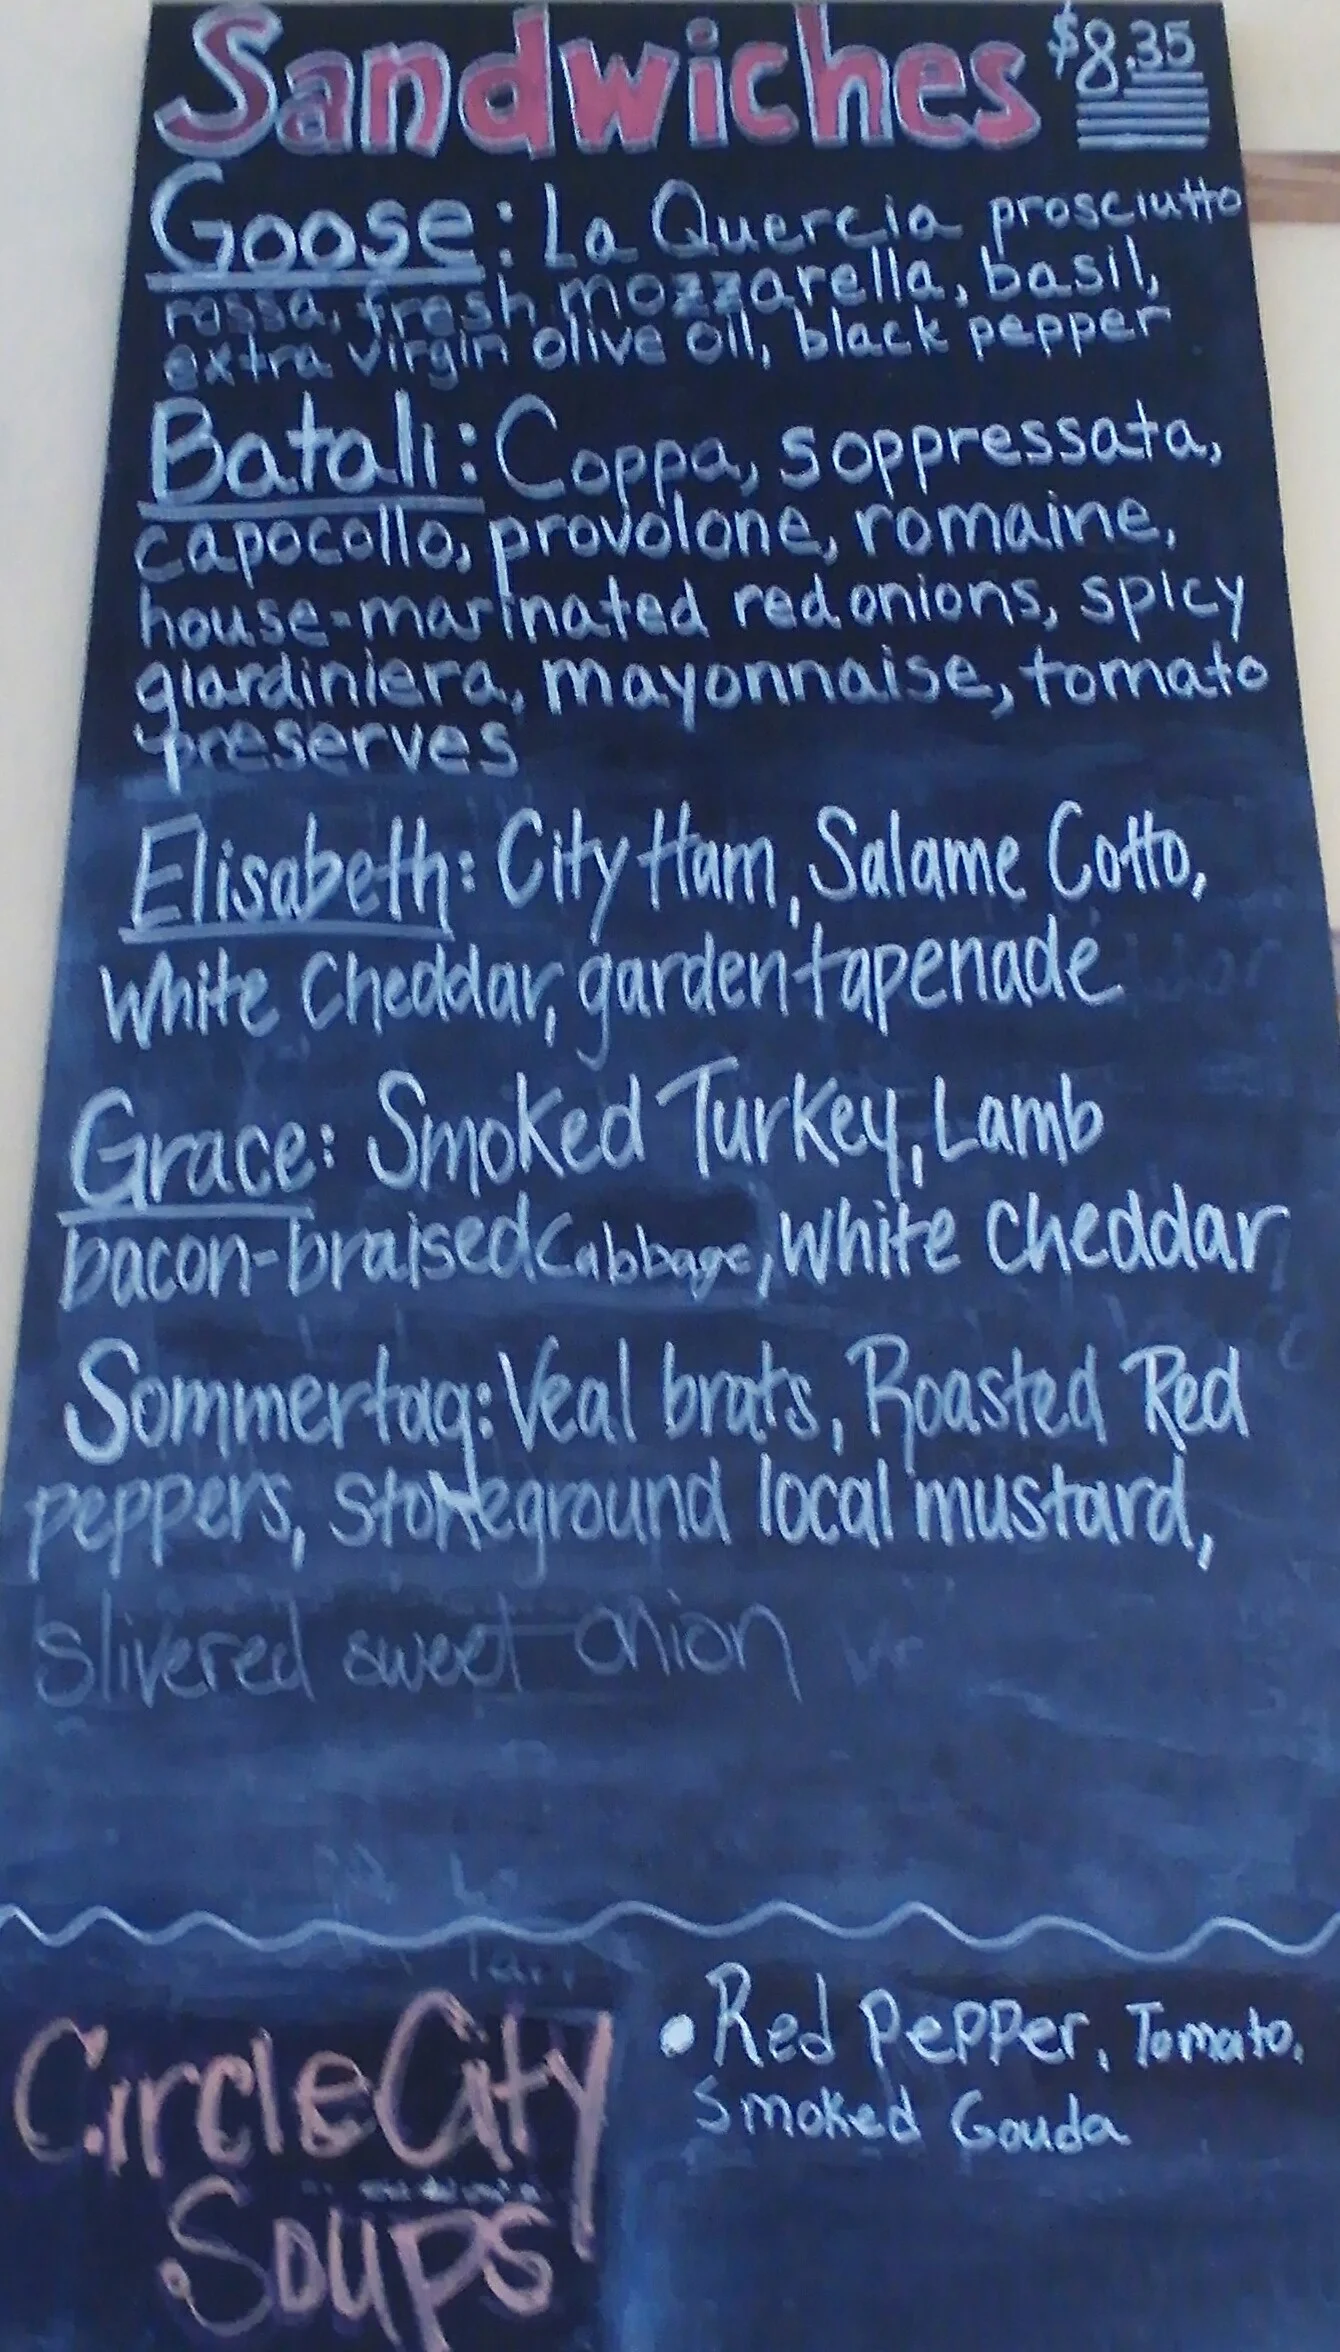 Sandwiches $8.35
Goose: La Quercia prosciutto
rossa, fresh mozzarella, basil,
extra virgin olive oil, black pepper
Batali: Coppa, soppressata,
capocollo, provolone, romaine,
house-marinated red onions, spicy
giardiniera, mayonnaise, tomato
preserves
Elisabeth: City Ham, Salame Cotto,
White Cheddar, garden tapenade
Grace: Smoked Turkey, Lamb
bacon-braised Cabbage, White Cheddar
Sommertag: Veal brats, Roasted Red
peppers, stoneground local mustard,
slivered sweet onion
Circle City
Soups
• Red Pepper, Tomato,
Smoked Gouda